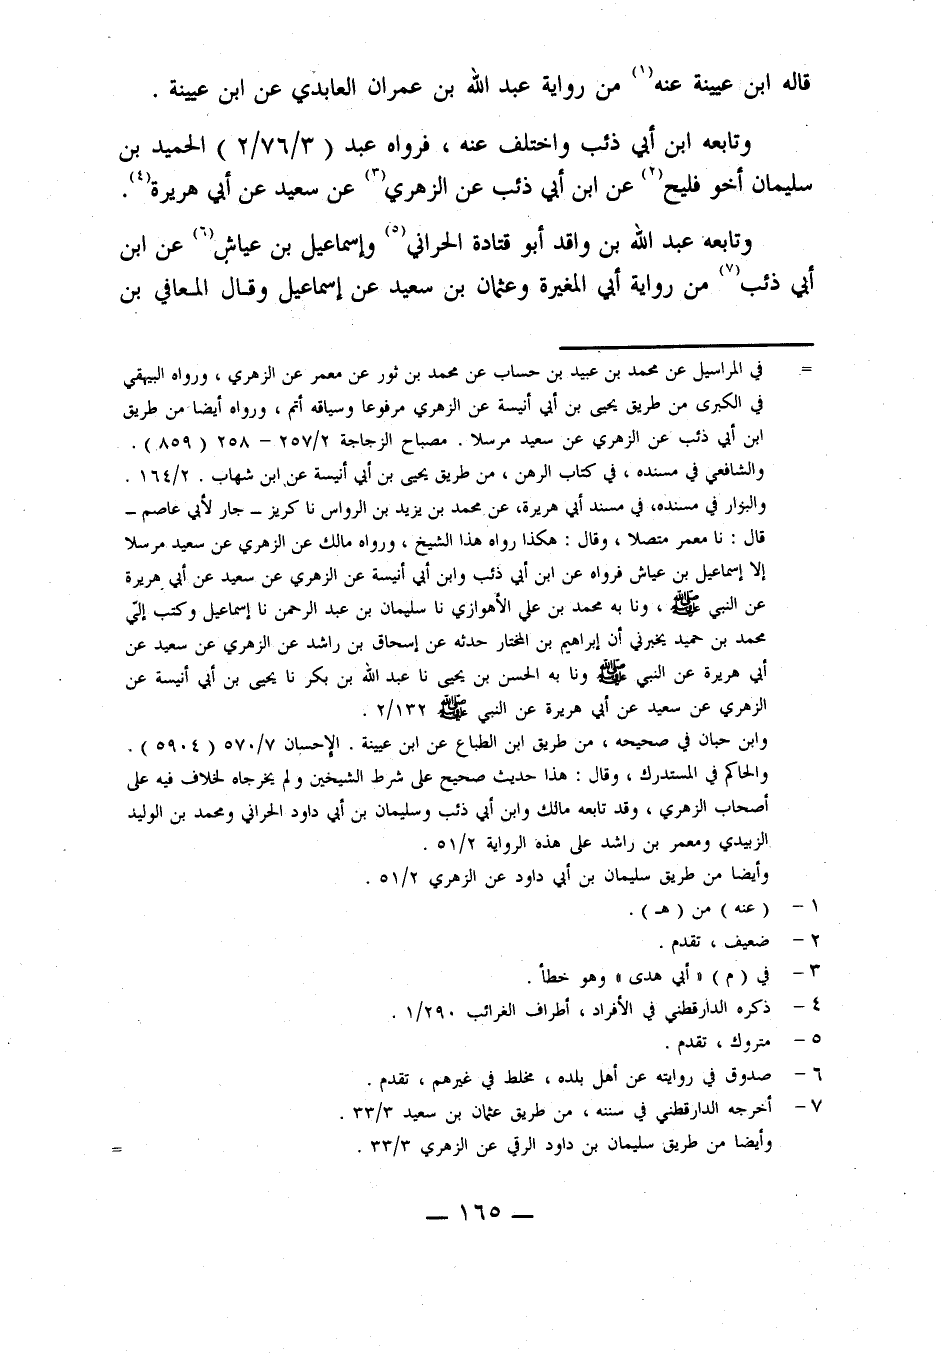 قاله ابن عيينة عنه(١) من رواية عبد الله بن عمران العابدي عن ابن عيينة .
وتابعه ابن أبي ذئب واختلف عنه ، فرواه عبد ( ٢/٧٦/٣ ) الحميد بن
سليمان أخو فليح(٢) عن ابن أبي ذئب عن الزهري(٣) عن سعيد عن أبي هريرة(٤).
وتابعه عبد الله بن واقد أبو قتادة الحراني(٥) وإسماعيل بن عياش(٦) عن ابن
أبي ذئب(٧) من رواية أبي المغيرة وعثمان بن سعيد عن إسماعيل وقال المعافي بن
= في المراسيل عن محمد بن عبيد بن حساب عن محمد بن ثور عن معمر عن الزهري ، ورواه البيهقي
في الكبرى من طريق يحيى بن أبي أنيسة عن الزهري مرفوعا وسياقه أتم ، ورواه أيضا من طريق
ابن أبي ذئب عن الزهري عن سعيد مرسلا . مصباح الزجاجة ٢٥٧/٢ – ٢٥٨ ( ٨٥٩ ) .
والشافعي في مسنده ، في كتاب الرهن ، من طريق يحيى بن أبي أنيسة عن ابن شهاب . ١٦٤/٢ .
والبزار في مسنده، في مسند أبي هريرة، عن محمد بن يزيد بن الرواس نا كريز – جار لأبي عاصم –
قال : نا معمر متصلا ، وقال : هكذا رواه هذا الشيخ ، ورواه مالك عن الزهري عن سعيد مرسلا
إلا إسماعيل بن عياش فرواه عن ابن أبي ذئب وابن أبي أنيسة عن الزهري عن سعيد عن أبي هريرة
عن النبي ﷺ ، ونا به محمد بن علي الأهوازي نا سليمان بن عبد الرحمن نا إسماعيل وكتب إليّ
محمد بن حميد يخبرني أن إبراهيم بن المختار حدثه عن إسحاق بن راشد عن الزهري عن سعيد عن
أبي هريرة عن النبي ﷺ ونا به الحسن بن يحيى نا عبد الله بن بكر نا يحيى بن أبي أنيسة عن
الزهري عن سعيد عن أبي هريرة عن النبي ﷺ ٢/١٣٢ .
وابن حبان في صحيحه ، من طريق ابن الطباع عن ابن عيينة . الإحسان ٥٧٠/٧ ( ٥٩٠٤ ) .
والحاكم في المستدرك ، وقال : هذا حديث صحيح على شرط الشيخين ولم يخرجاه لخلاف فيه على
أصحاب الزهري ، وقد تابعه مالك وابن أبي ذئب وسليمان بن أبي داود الحراني ومحمد بن الوليد
الزبيدي ومعمر بن راشد على هذه الرواية ٥١/٢ .
وأيضا من طريق سليمان بن أبي داود عن الزهري ٥١/٢ .
١ – ( عنه ) من ( هـ ) .
٢ – ضعيف ، تقدم .
٣ – في ( م ) « أبي هدى » وهو خطأ .
٤ – ذكره الدارقطني في الأفراد ، أطراف الغرائب ١/٢٩٠ .
٥ – متروك ، تقدم .
٦ – صدوق في روايته عن أهل بلده ، مخلط في غيرهم ، تقدم .
٧ – أخرجه الدارقطني في سننه ، من طريق عثمان بن سعيد ٣٣/٣ .
وأيضا من طريق سليمان بن داود الرقي عن الزهري ٣٣/٣ . =
— ١٦٥ —